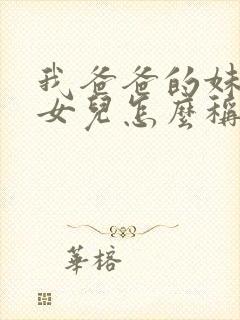 我爸爸的妹
女兒怎麼稱
華榕